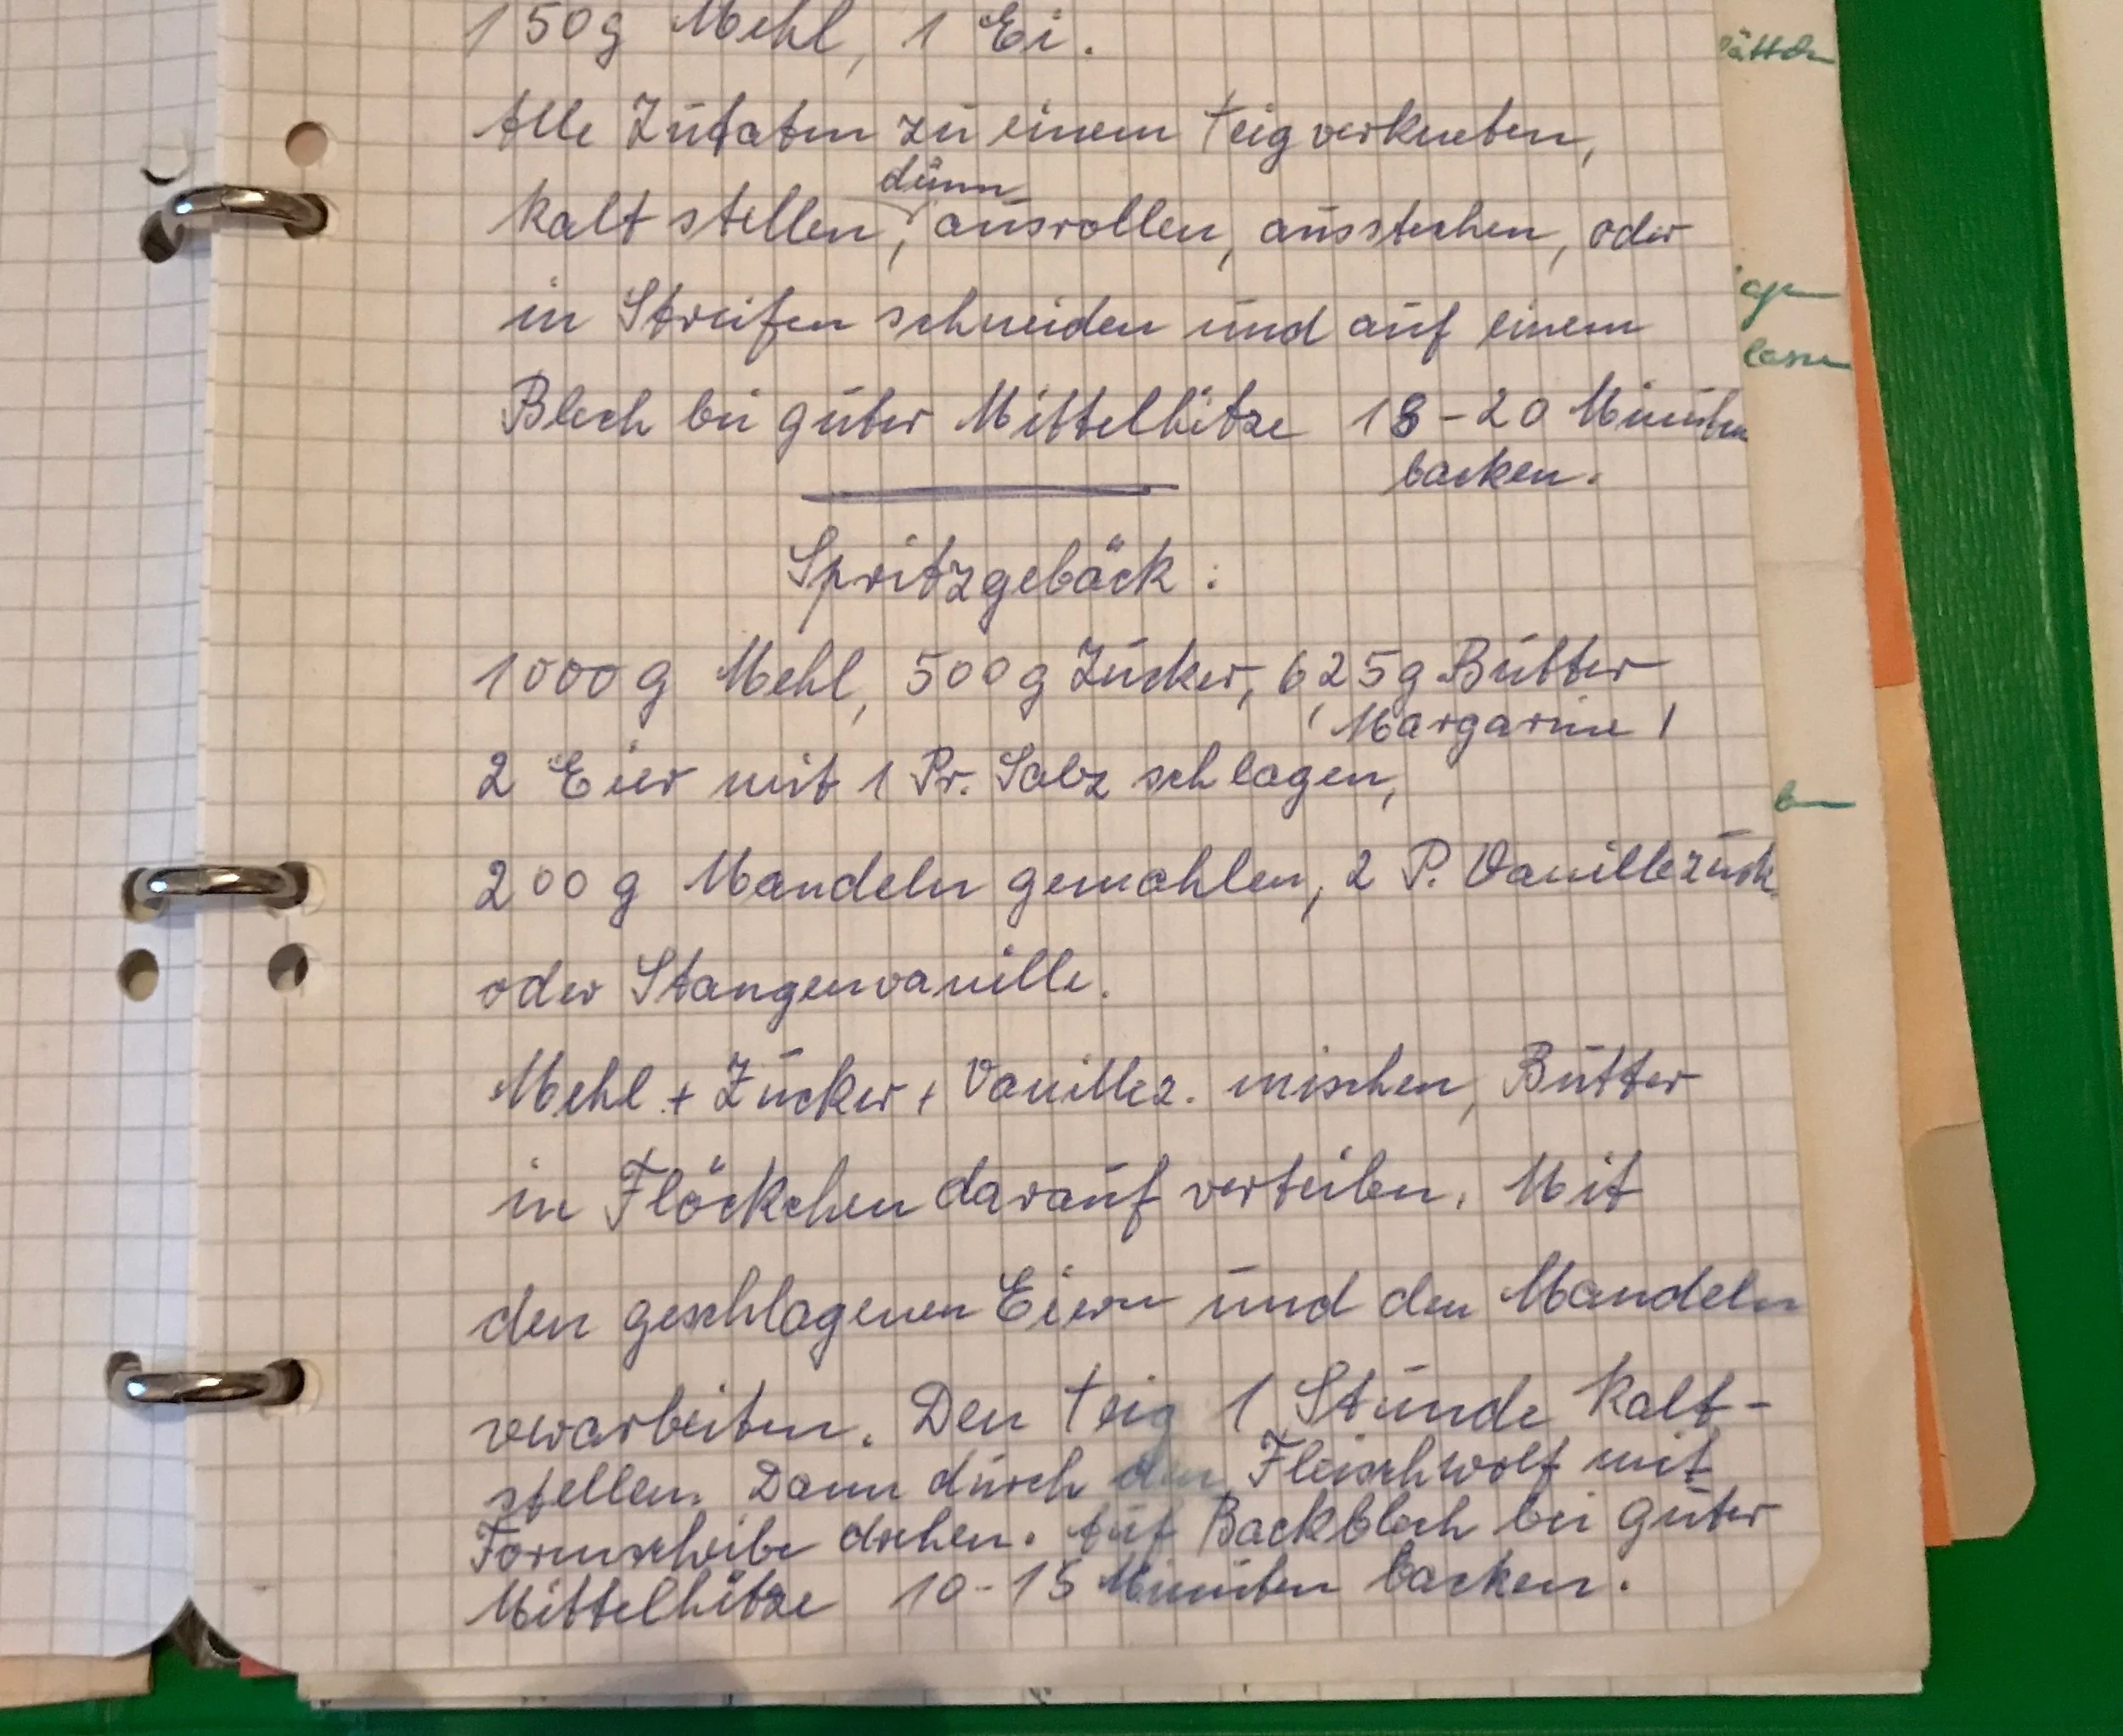 150g Mehl, 1 Ei.
Alle Zutaten zu einem Teig verkneten,
dünn
kalt stellen, ausrollen, ausstechen, oder
in Streifen schneiden und auf einem
Blech bei guter Mittelhitze 18-20 Minuten
backen.
Spritzgebäck:
1000g Mehl, 500g Zucker, 625g Butter
(Margarine)
2 Eier mit 1 Pr. Salz schlagen,
200g Mandeln gemahlen, 2 P. Vanillezuck.
oder Stangenvanille.
Mehl + Zucker + Vanillez. mischen, Butter
in Flöckchen darauf verteilen. Mit
den geschlagenen Eiern und den Mandeln
verarbeiten. Den Teig 1 Stunde kalt-
stellen. Dann durch den Fleischwolf mit
Formscheibe drehen. Auf Backblech bei guter
Mittelhitze 10-15 Minuten backen.